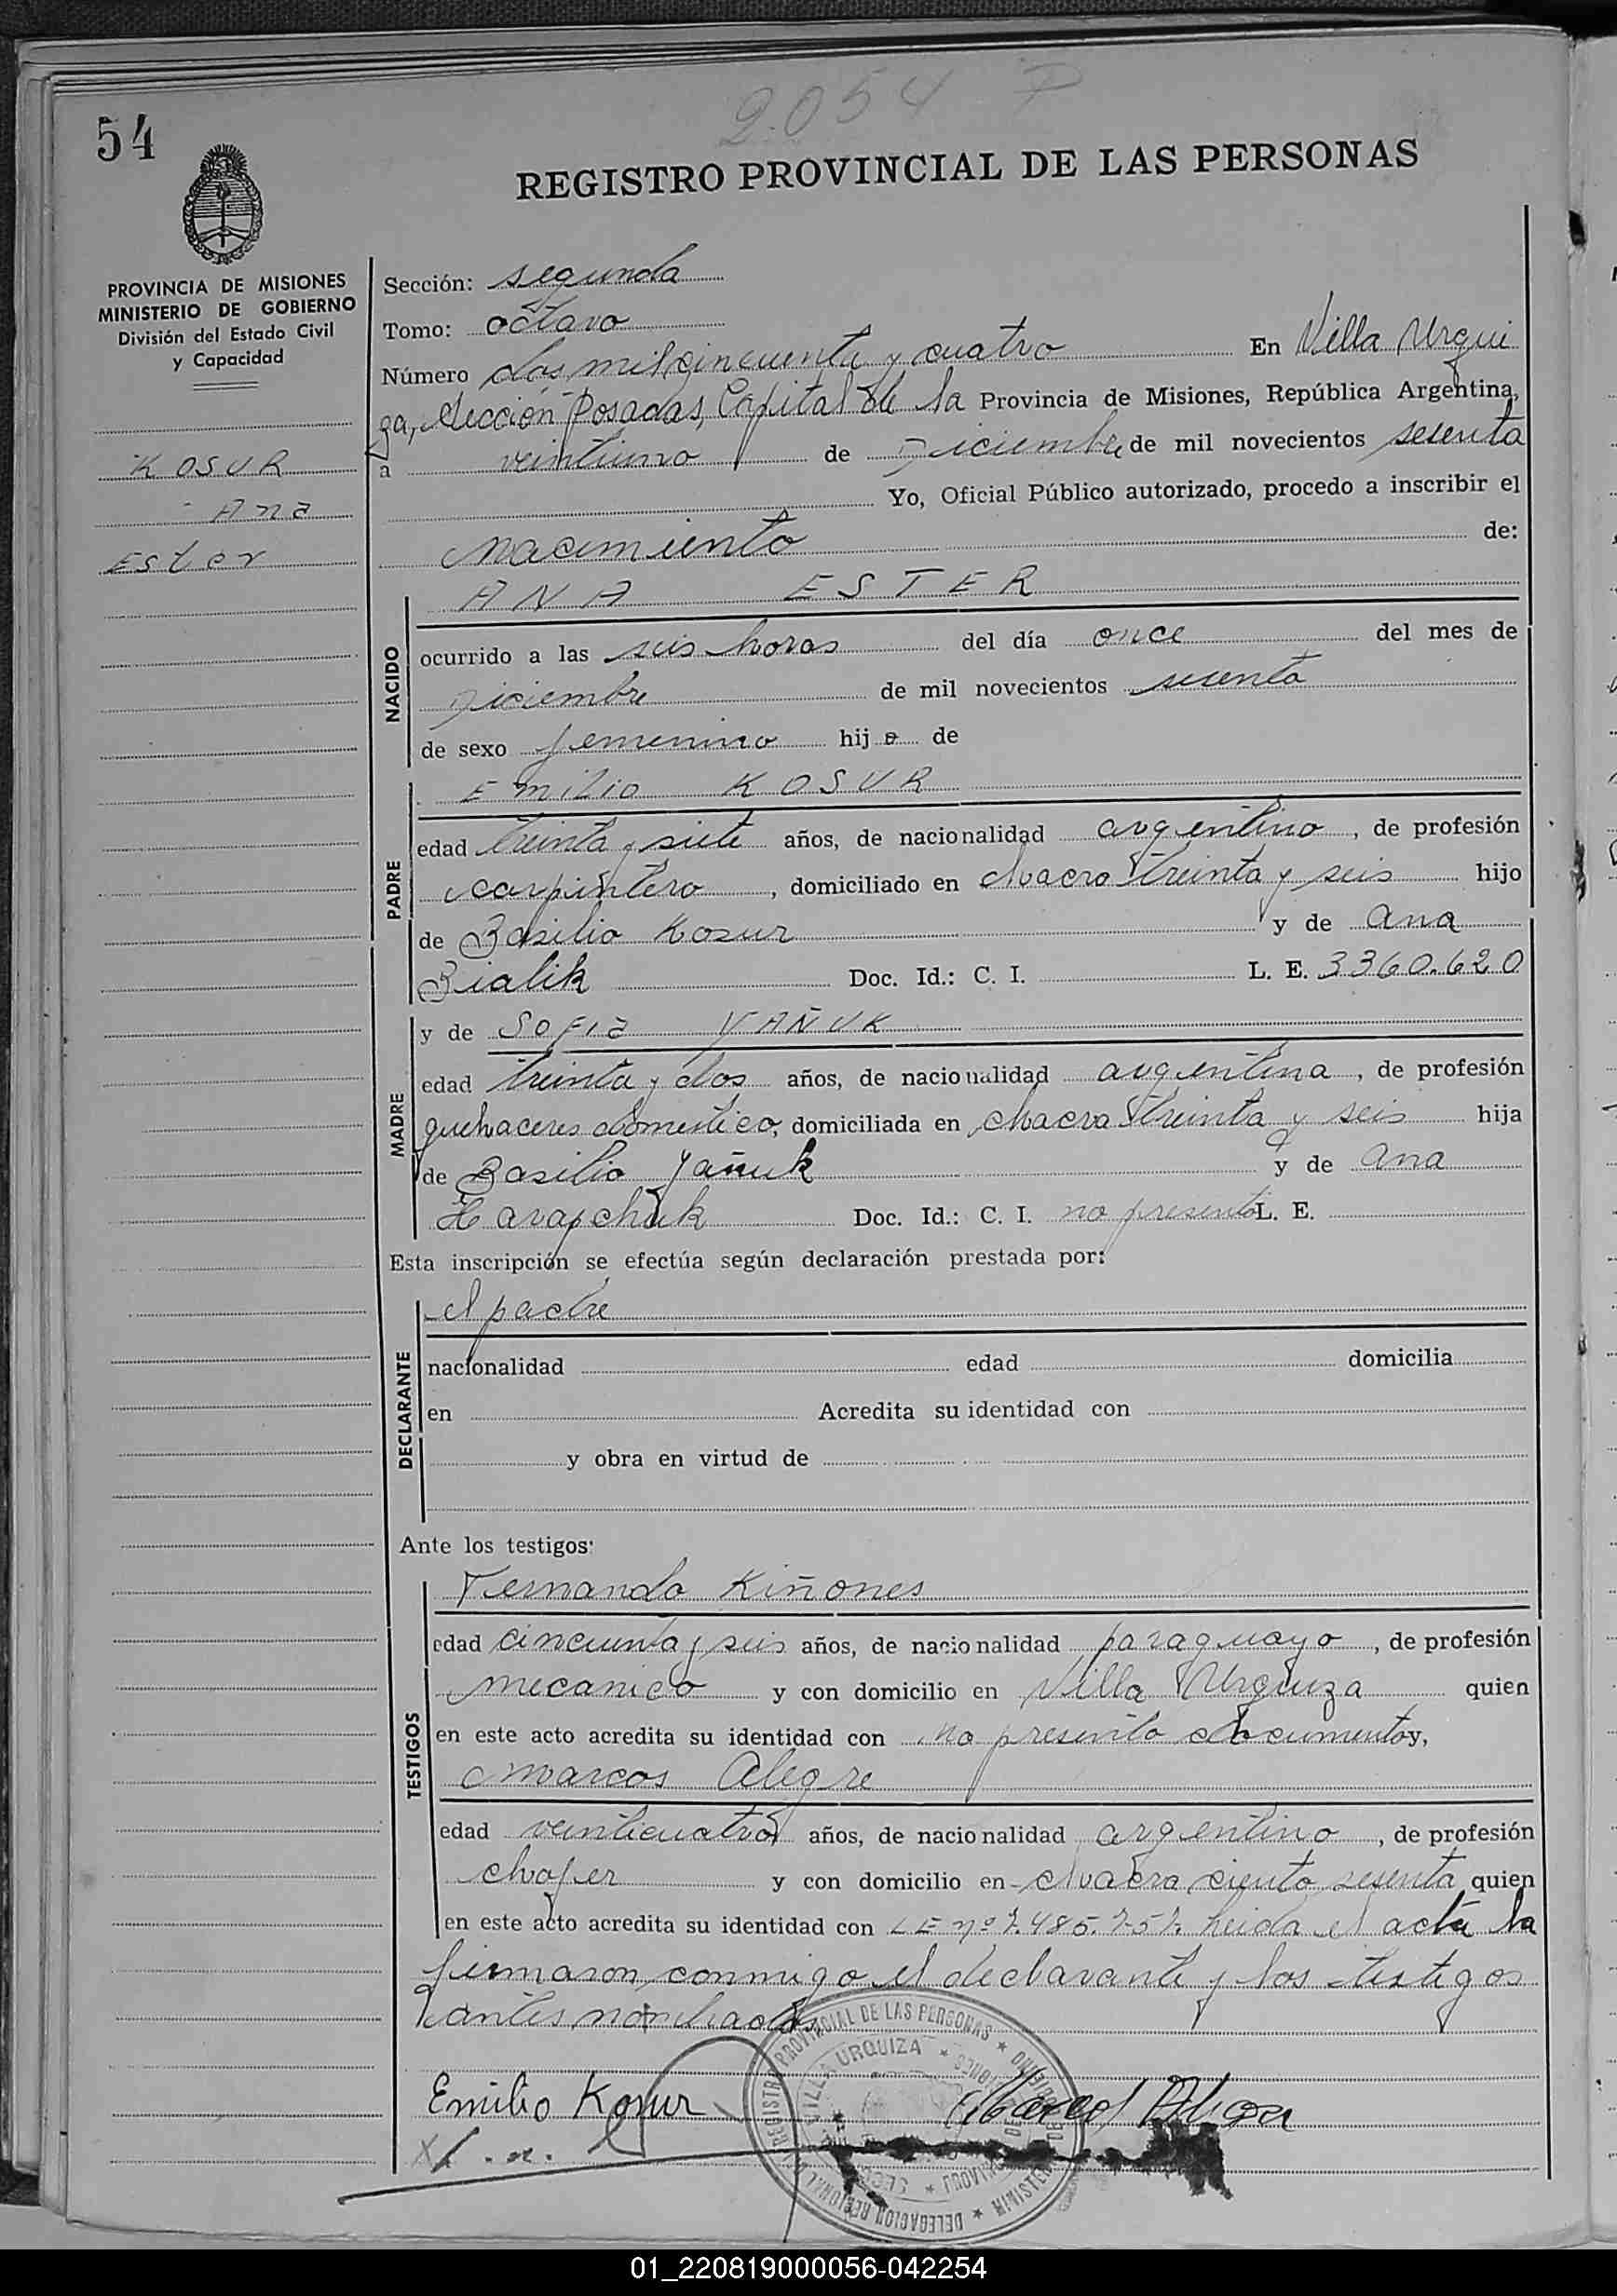 2.054 P
54
REGISTRO PROVINCIAL DE LAS PERSONAS
PROVINCIA DE MISIONES
MINISTERIO DE GOBIERNO
División del Estado Civil
y Capacidad
KOSUR
Ana
Ester
Sección: segunda
Tomo: octavo
Número dos mil cincuenta y cuatro En Villa Urqui
za, Sección Posadas, Capital de la Provincia de Misiones, República Argentina,
a veintiuno de Diciembre de mil novecientos sesenta
Yo, Oficial Público autorizado, procedo a inscribir el
nacimiento de:
ANA ESTER
NACIDO
ocurrido a las seis horas del día once del mes de
Diciembre de mil novecientos sesenta
de sexo femenino hija de
Emilio KOSUR
PADRE
edad treinta y siete años, de nacionalidad argentino, de profesión
carpintero, domiciliado en chacra treinta y seis hijo
de Basilio Kosur y de Ana
Bialik Doc. Id.: C. I. L. E. 3360.620
MADRE
y de Sofia YAÑUK
edad treinta y dos años, de nacionalidad argentina, de profesión
quehaceres domestico, domiciliada en chacra treinta y seis hija
de Basilio Yañuk y de Ana
Harapchuk Doc. Id.: C. I. no presento L. E.
Esta inscripción se efectúa según declaración prestada por:
DECLARANTE
el padre
nacionalidad edad domicilia
en Acredita su identidad con
y obra en virtud de
Ante los testigos:
TESTIGOS
Fernando Kiñones
edad cincuenta y seis años, de nacionalidad paraguayo, de profesión
mecanico y con domicilio en Villa Urquiza quien
en este acto acredita su identidad con no presento documento y,
Marcos Alegre
edad veinticuatro años, de nacionalidad argentino, de profesión
chofer y con domicilio en chacra ciento sesenta quien
en este acto acredita su identidad con LE nº 7.485.757. Leida el acta la
firmaron conmigo el declarante y los testigos
antes nombrados
Emilio Kosur
REGISTRO PROVINCIAL DE LAS PERSONAS
VILLA URQUIZA
DELEGACION REGIONAL
01_220819000056-042254